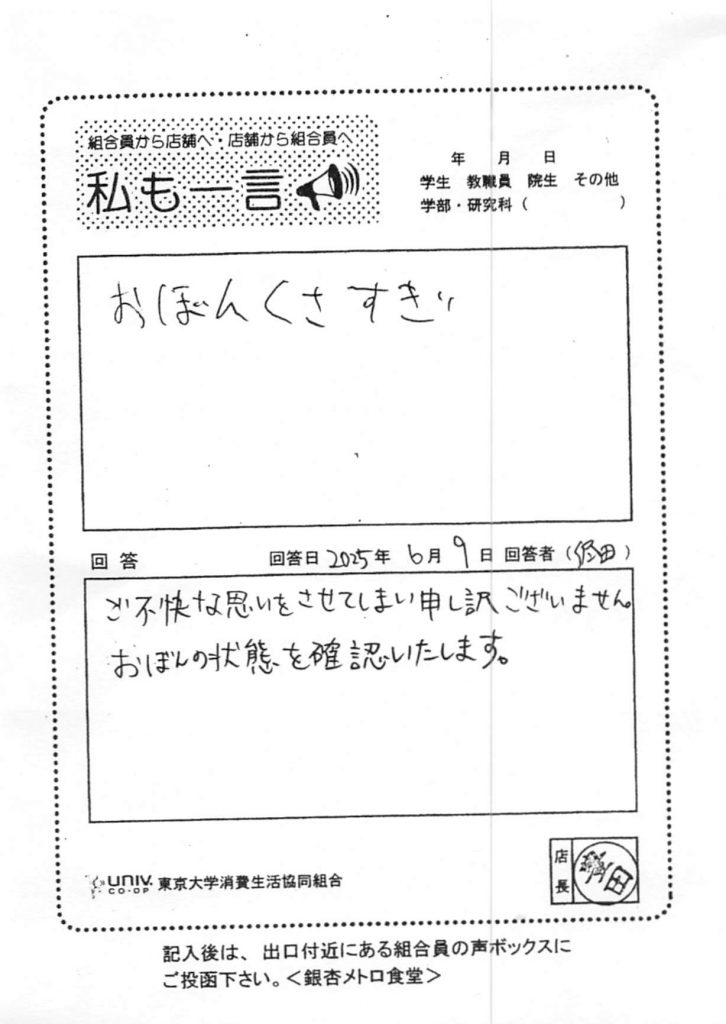 組合員から店舗へ・店舗から組合員へ
私も一言
年 月 日
学生 教職員 院生 その他
学部・研究科（ ）
おぼんくさすぎい
回答 回答日 2025年 6月 9日 回答者（ 田）
ご不快な思いをさせてしまい申し訳ございません
おぼんの状態を確認いたします。
店長
UNIV. CO-OP 東京大学消費生活協同組合
記入後は、出口付近にある組合員の声ボックスに
ご投函下さい。＜銀杏メトロ食堂＞